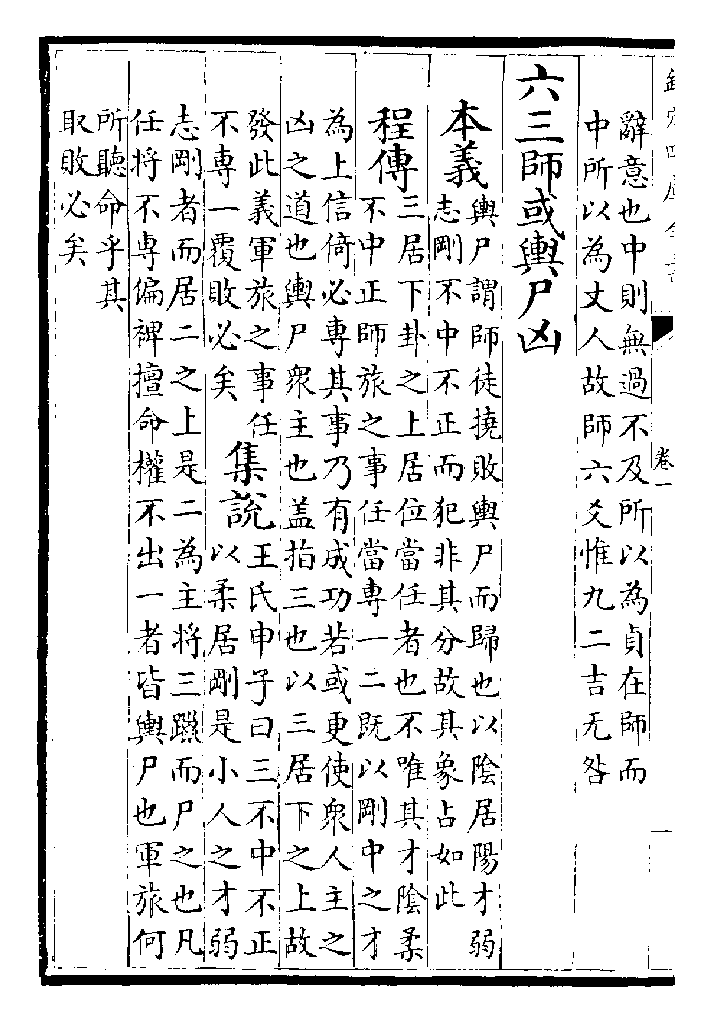 欽定四庫全書
卷一
辭意也中則無過不及所以為貞在師而
中所以為丈人故師六爻惟九二吉无咎
六三師或輿尸凶
本義
輿尸謂師徒撓敗輿尸而歸也以陰居陽才弱
志剛不中不正而犯非其分故其象占如此
程傳
三居下卦之上居位當任者也不唯其才陰柔
不中正師旅之事任當專一二既以剛中之才
為上信倚必專其事乃有成功若或更使衆人主之
凶之道也輿尸衆主也盖指三也以三居下之上故
發此義軍旅之事任
不專一覆敗必矣
集說
王氏申子曰三不中不正
以柔居剛是小人之才弱
志剛者而居二之上是二為主將三躐而尸之也凡
任將不専偏裨擅命權不出一者皆輿尸也軍旅何
所聽命乎其
取敗必矣